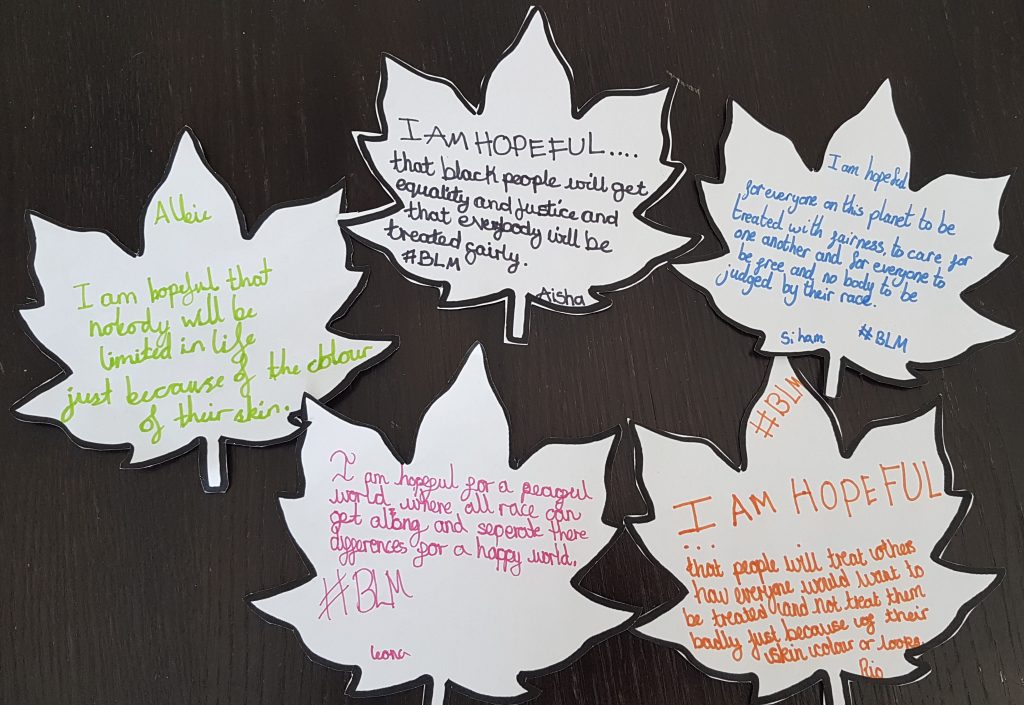 Alkie
I am hopeful that
nobody will be
limited in life
just because of the colour
of their skin.
I AM HOPEFUL....
that black people will get
equality and justice and
that everybody will be
treated fairly.
#BLM
Aisha
I am hopeful
for everyone on this planet to be
treated with fairness, to care for
one another and for everyone to
be free and no body to be
judged by their race.
Siham #BLM
I am hopeful for a peaceful
world, where all race can
get along and seperate there
differences for a happy world.
#BLM
leona
#BLM
I AM HOPEFUL
...
that people will treat others
how everyone would want to
be treated and not treat them
badly just because of their
skin colour or looks.
Rio